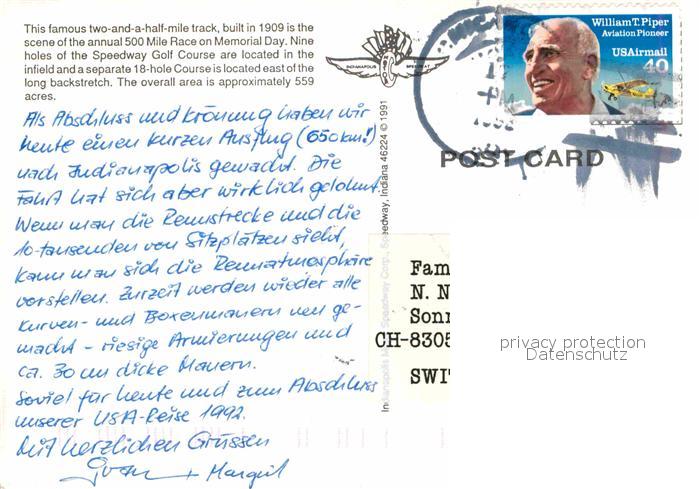 This famous two-and-a-half-mile track, built in 1909 is the
scene of the annual 500 Mile Race on Memorial Day. Nine
holes of the Speedway Golf Course are located in the
infield and a separate 18-hole Course is located east of the
long backstretch. The overall area is approximately 559
acres.
INDIANAPOLIS SPEEDWAY
William T. Piper
Aviation Pioneer
USAirmail
40
POST CARD
Als Abschluss und Krönung haben wir
heute einen kurzen Ausflug (650km!)
nach Indianapolis gemacht. Die
Fahrt hat sich aber wirklich gelohnt.
Wenn man die Rennstrecke und die
10-tausenden von Sitzplätzen sieht,
kann man sich die Rennatmosphäre
vorstellen. Zurzeit werden wieder alle
Kurven- und Boxenmauern neu ge-
macht - riesige Armierungen und
ca. 30 cm dicke Mauern.
Soviel für heute und zum Abschluss
unserer USA-Reise 1992.
Mit herzlichen Grüssen
+ Margrit
Speedway Corp., Speedway, Indiana 46224 © 1991
Fam
N. N
Sonn
CH-8305
SWIT
privacy protection
Datenschutz